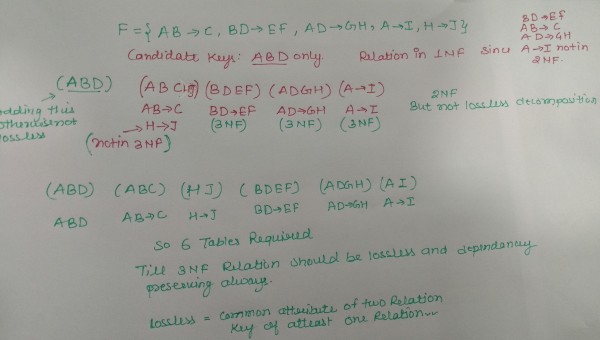 F = { AB → C, BD → EF, AD → GH, A → I, H → J }
BD → EF
AB → C
AD → GH
A → I not in
2NF.
Candidate Keys: ABD only. Relation in 1NF since
(ABD) (ABC) (BDEF) (ADGH) (A → I)
AB → C BD → EF AD → GH A → I
→ H → J (3NF) (3NF) (3NF)
(not in 3NF)
adding this
otherwise not
lossless
2NF
But not lossless decomposition
(ABD) (ABC) (HJ) (BDEF) (ADGH) (AI)
ABD AB → C H → J BD → EF AD → GH A → I
So 6 Tables Required
Till 3NF Relation should be lossless and dependancy
preserving always.
lossless = common attribute of two Relation
Key of atleast one Relation